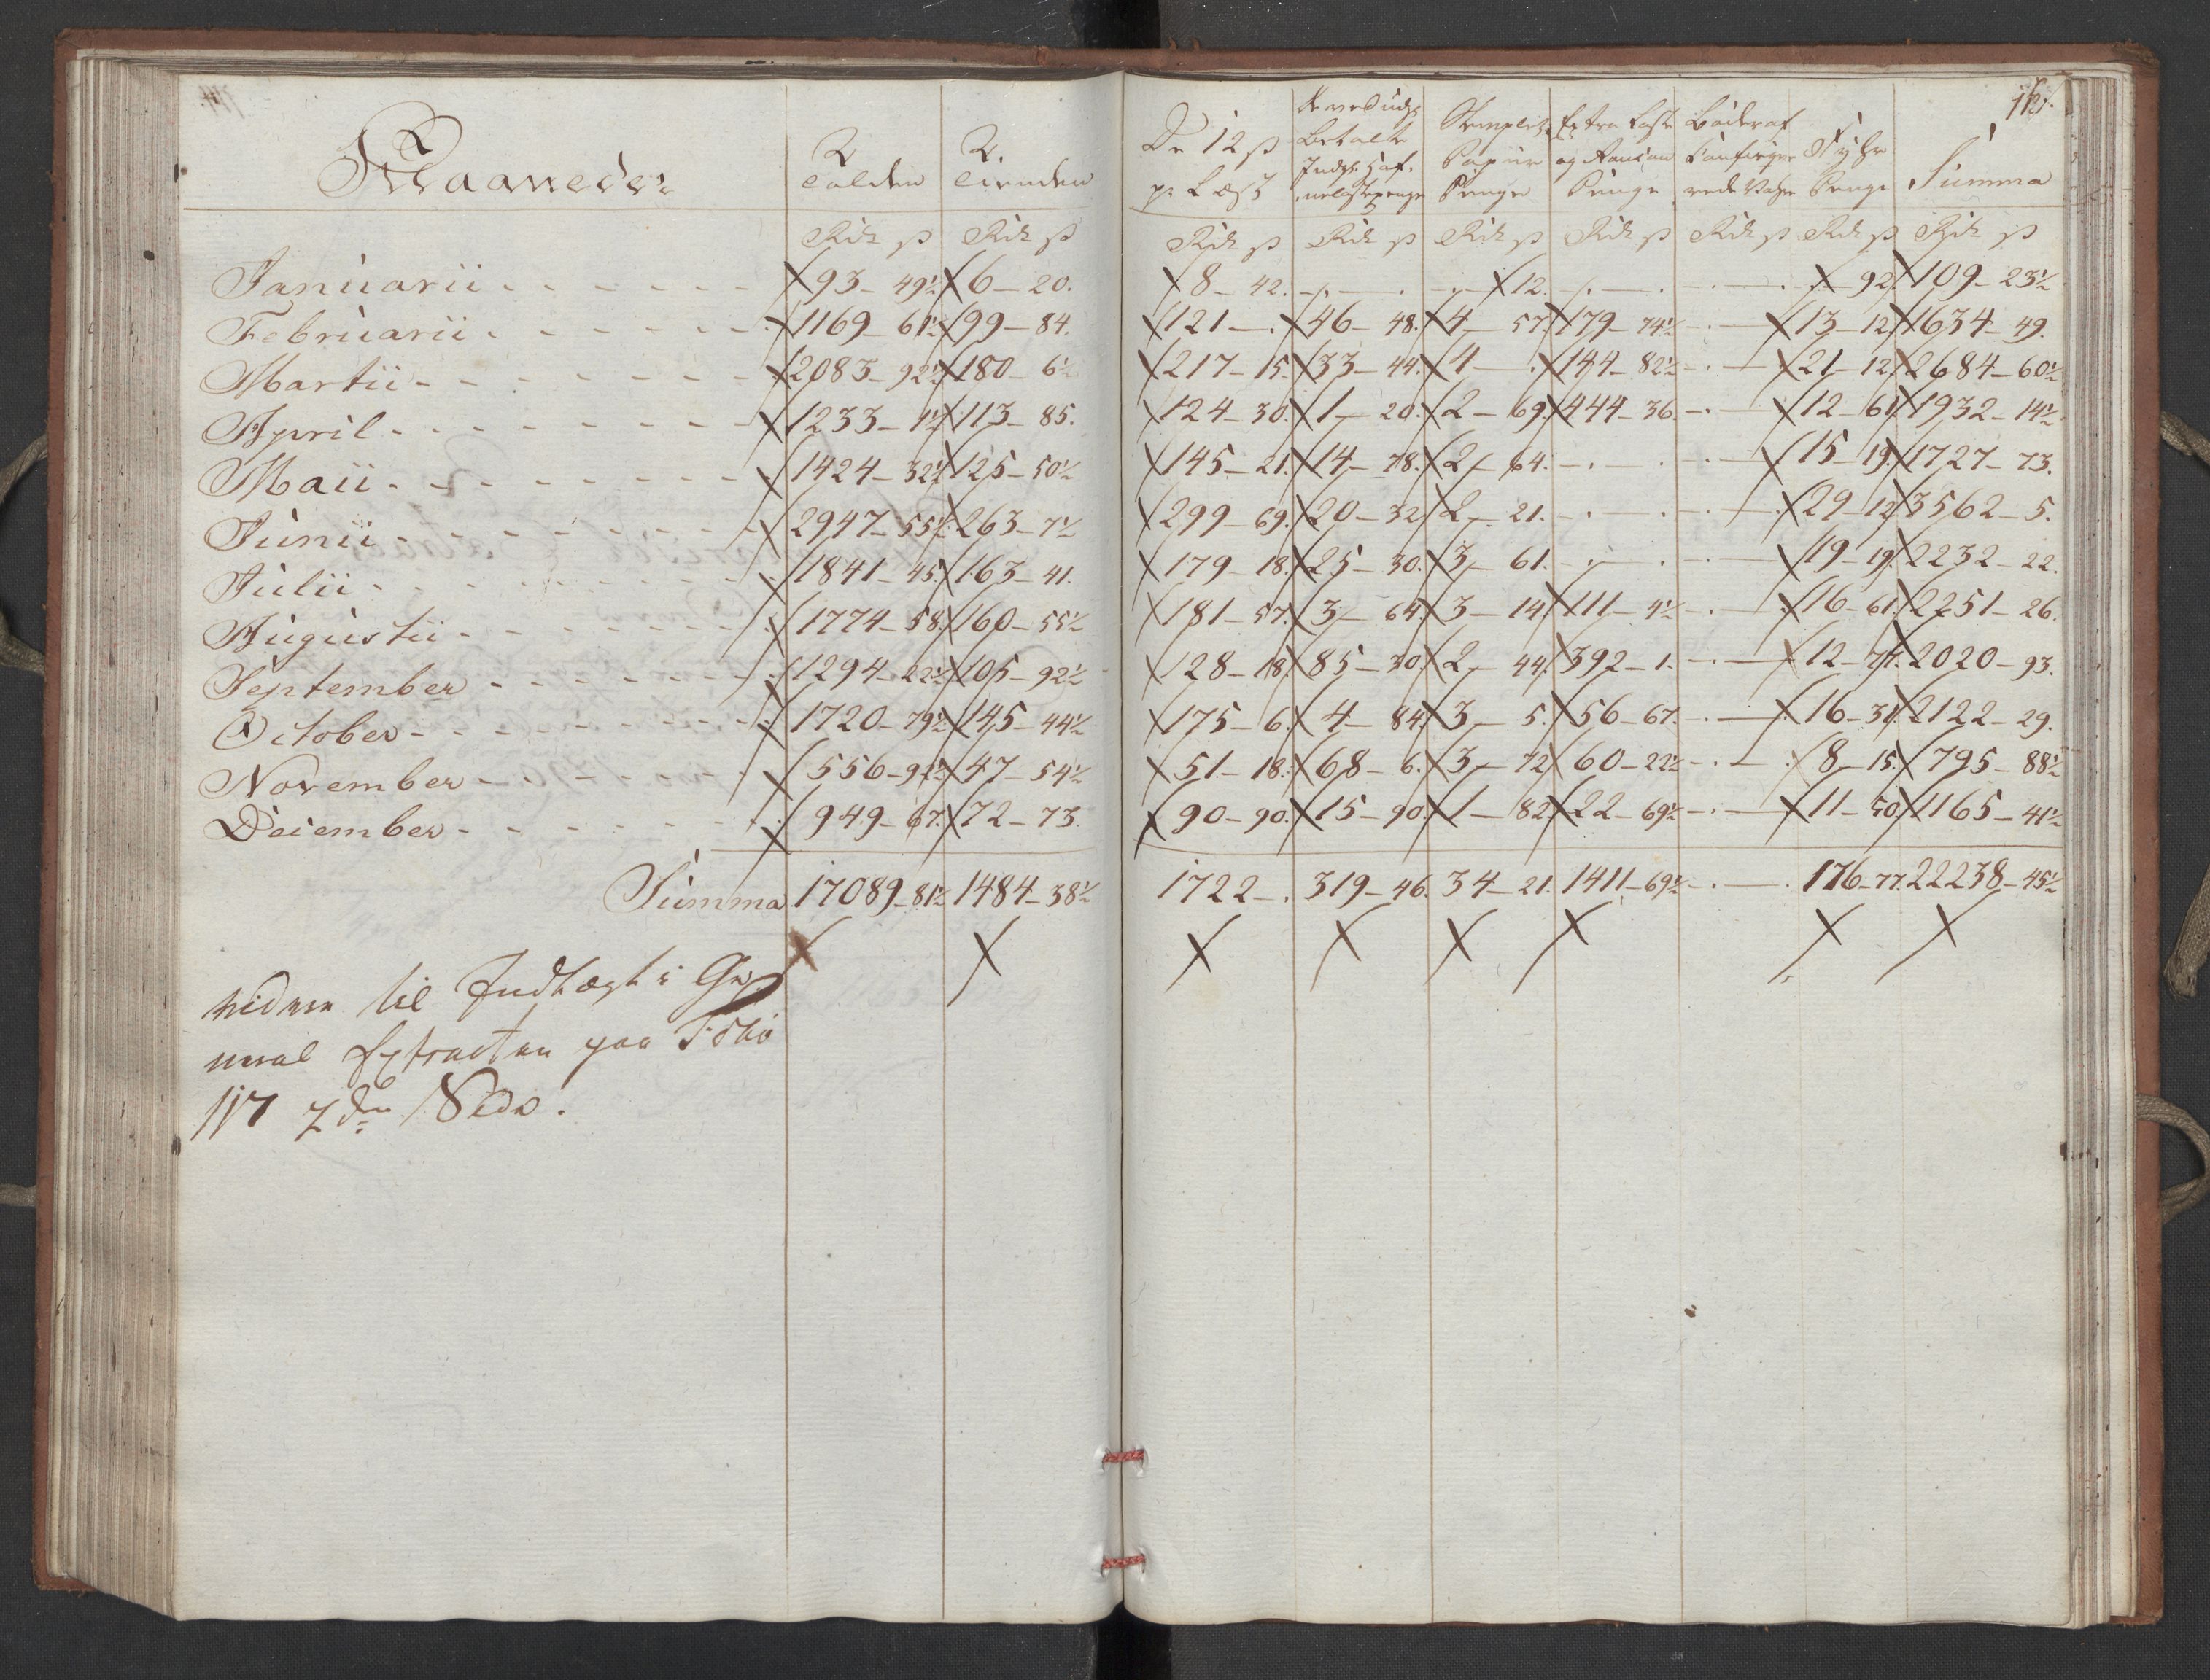 115.
Maaneder
Tolden
Tienden
De 12 ß pr Læst
Betalte Indgl: Haf-nelystepenge
Stemplet Papiir Penge
Extra Laste og Rançon Penge
Bøder af Confisqve-rede Vahre
Fyhr Penge
Summa
Rdr ß Rdr ß Rdr ß Rdr ß Rdr ß Rdr ß Rdr ß Rdr ß Rdr ß
Januarii - - - 93 - 49½ 6 - 20. 8 - 42. - . - . 12. - . - . - . - 92. 109 - 23½
Februarii - - - 1169 - 61½ 99 - 84. 121 - . 46 - 48. 4 - 57. 179 - 74½ - . - 13 - 12. 1634 - 49.
Martii - - - 2083 - 92½ 180 - 6½ 217 - 15. 33 - 44. 4 - . 144 - 82½ - . - 21 - 12. 2684 - 60½
April - - - 1233 - 1½ 113 - 85. 124 - 30. 1 - 20. 2 - 69. 444 - 36. - . - 12 - 61. 1932 - 14½
Maii - - - 1424 - 32½ 125 - 50½ 145 - 21. 14 - 78. 2 - 64. - . - . - . - 15 - 19. 1727 - 73.
Junii - - - 2947 - 55½ 263 - 7½ 299 - 69. 20 - 32. 2 - 21. - . - . - . - 29 - 12. 3562 - 5.
Julii - - - 1841 - 45. 163 - 41. 179 - 18. 25 - 30. 3 - 61. - . - . - . - 19 - 19. 2232 - 22.
Augustii - - - 1774 - 58. 160 - 55½ 181 - 57. 3 - 64. 3 - 14. 111 - 4½ - . - 16 - 61. 2251 - 26.
September - - - 1294 - 22½ 105 - 92½ 128 - 18. 85 - 30. 2 - 44. 392 - 1. - . - 12 - 74. 2020 - 93.
October - - - 1720 - 79½ 145 - 44½ 175 - 6. 4 - 84. 3 - 5. 56 - 67. - . - 16 - 31. 2122 - 29.
November - - - 556 - 92½ 47 - 54½ 51 - 18. 68 - 6. 3 - 72. 60 - 22½ - . - 8 - 15. 795 - 88½
December - - - 949 - 67. 72 - 73. 90 - 90. 15 - 90. 1 - 82. 22 - 69½ - . - 11 - 50. 1165 - 41½
Summa 17089 - 81½ 1484 - 38½ 1722 - . 319 - 46. 34 - 21. 1411 - 69½ - . - . 176 - 77. 22238 - 45½
videre til Indtægt i Ge-
neral Extracten paa Folio
117 2den Side.